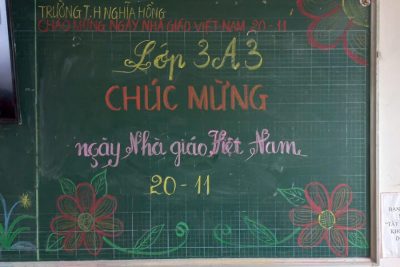 TRƯỜNG T.H NGHĨA HỒNG
CHÀO MỪNG NGÀY NHÀ GIÁO VIỆT NAM 20-11
Lớp 3A3
CHÚC MỪNG
ngày Nhà giáo Việt Nam
20-11